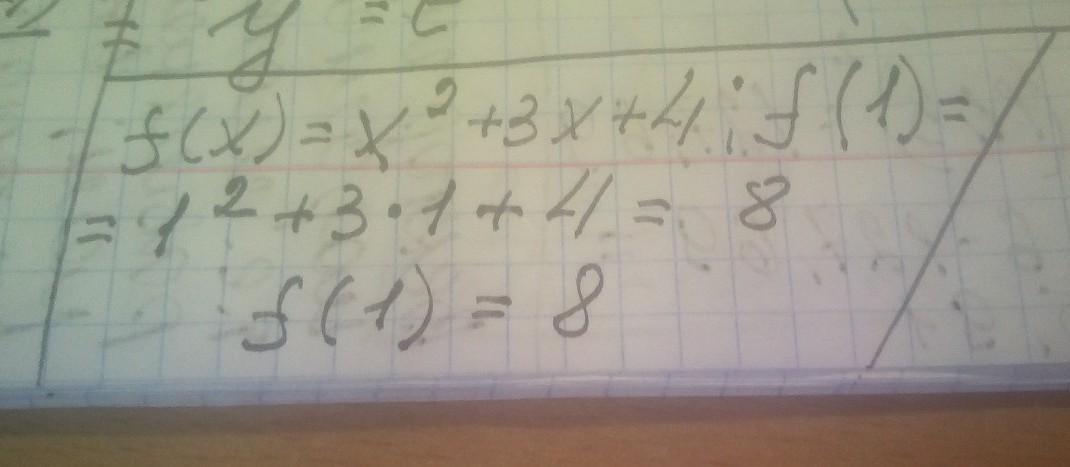 y =
f(x) = x² + 3x + 4; f(1) =
= 1² + 3·1 + 4 = 8
f(1) = 8